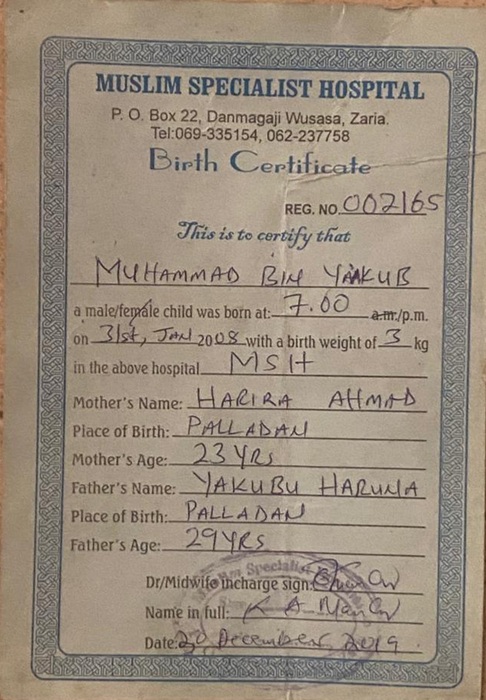 MUSLIM SPECIALIST HOSPITAL
P. O. Box 22, Danmagaji Wusasa, Zaria.
Tel:069-335154, 062-237758
Birth Certificate
REG. NO. 002165
This is to certify that
MUHAMMAD BIN YAAKUB
a male/female child was born at: 7.00 a.m./p.m.
on 31st, JAN 2008 with a birth weight of 3 kg
in the above hospital MSH
Mother's Name: HARIRA AHMAD
Place of Birth: PALLADAN
Mother's Age: 23 YRS
Father's Name: YAKUBU HARUNA
Place of Birth: PALLADAN
Father's Age: 29 YRS
Specialist
Dr/Midwife incharge sign:
Name in full: K A
Date: December, 2019